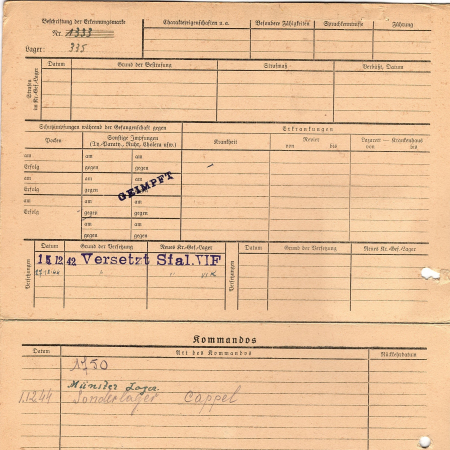 Beschriftung der Erkennungsmarke
Nr. 1333
Lager: 335
Charaktereigenschaften u.a.
Besondere Fähigkeiten
Sprachkenntnisse
Führung
Strafen im Kr.-Gef.-Lager
Datum
Grund der Bestrafung
Strafmaß
Verbüßt, Datum
Schutzimpfungen während der Gefangenschaft gegen
Erkrankungen
Pocken
Sonstige Impfungen
(Ty.-Paraty., Ruhr, Cholera usw.)
Krankheit
Revier
von bis
Lazarett — Krankenhaus
von bis
am am am
Erfolg gegen gegen
am am am
Erfolg gegen gegen
am am am
Erfolg gegen gegen
am am
gegen gegen
am am
gegen gegen
GEIMPFT
Versetzungen
Datum
Grund der Versetzung
Neues Kr.-Gef.-Lager
Versetzungen
Datum
Grund der Versetzung
Neues Kr.-Gef.-Lager
12 42 Versetzt Stal. VI F
VI K
Kommandos
Datum
Art des Kommandos
Rückkehrdatum
1750
Münster Laza.
1.12.44 Sonderlager Cappel